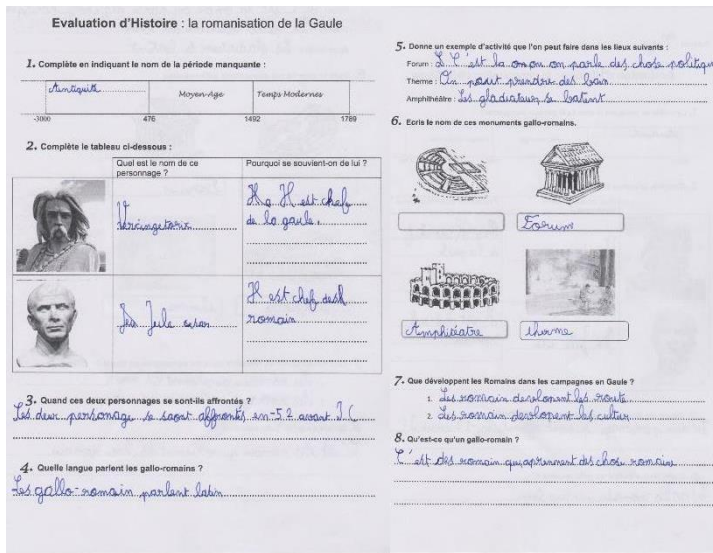 Evaluation d'Histoire : la romanisation de la Gaule
1. Complète en indiquant le nom de la période manquante :
Antiquité
Moyen-Age
Temps Modernes
-3000 476 1492 1789
2. Complète le tableau ci-dessous :
Quel est le nom de ce personnage ?
Pourquoi se souvient-on de lui ?
Vercingetorx
Il est chef
de la gaule.
Jule
Il est chef des
romain
3. Quand ces deux personnages se sont-ils affrontés ?
Les deux personage se saont affrontés en -52 avant J.C
4. Quelle langue parlent les gallo-romains ?
Les gallo-romain parlent latin
5. Donne un exemple d'activité que l'on peut faire dans les lieux suivants :
Forum : C'est la on on parle des chose politique
Therme : On peut prendre des bain
Amphithéâtre : Les gladiateur se batent
6. Ecris le nom de ces monuments gallo-romains.
Forum
Amphitéatre
therme
7. Que développent les Romains dans les campagnes en Gaule ?
1. Les romain developent les route
2. Les romain developent les cultur
8. Qu'est-ce qu'un gallo-romain ?
C'est des romain qui aprennent des chose romaine